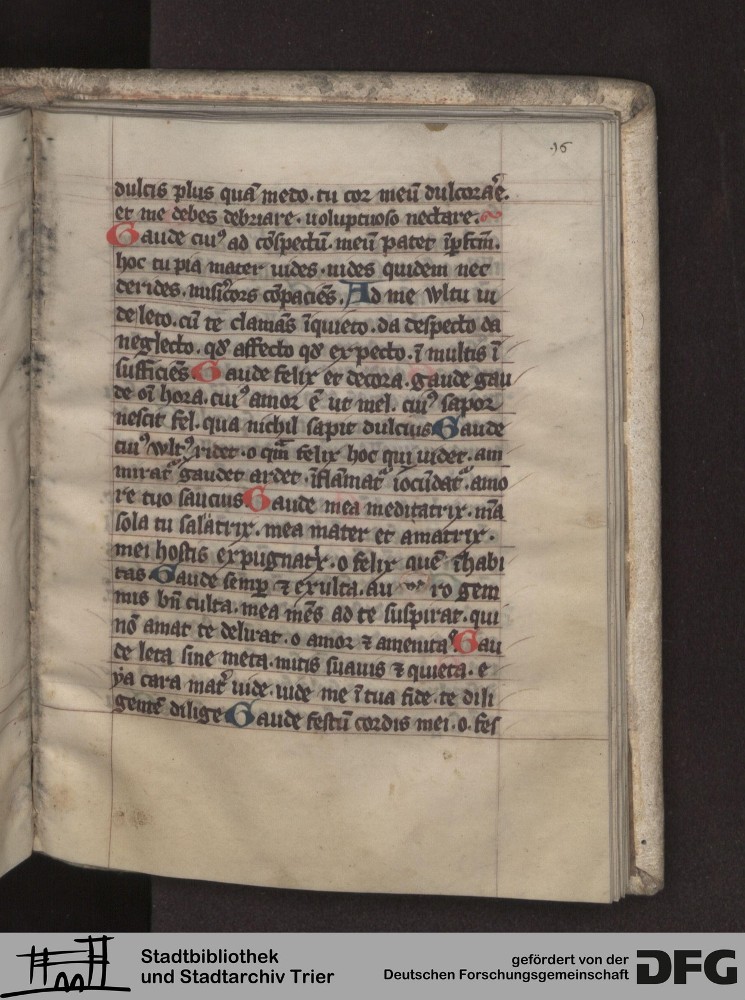 .16
dulcis plus quā meto. tu cor meū dulcorae.
et me debes debriare. uoluptuoso nectare.
Gaude cui⁹ ad cōspectū. meū patet īpfcm̄.
hoc tu pia mater uides. uides quidem nec
derides. misicors cōpaciēs. Ad me wltu ui
de leto. cū te clamās īquieto. da despecto da
neglecto. qď affecto qď expecto. ī multis ī
sufficiēs Gaude felix et decora. gaude gau
de oī hora. cui⁹ amor ē ut mel. cui⁹ sapor
nescit fel. qua nichil sapit dulcius Gaude
cui⁹ wlt⁹ ridet. o qm̄ felix hoc qui uidet. am
mirat᷑ gaudet ardet. īflāmat᷑ iocūdat᷑. amo
re tuo saucius Gaude mea meditatrix. mīa
sola tu salātrix. mea mater et amatrix.
mei hostis expugnatx. o felix quē īhabi
tas Gaude semp̄ ⁊ exulta. au ro gem
mis bn̄ culta. mea mēs ad te suspirat. qui
nō amat te delirat. o amor ⁊ amenita⁹ Gau
de leta sine meta. mitis suauis ⁊ quieta. e
ya cara mat᷑ uide. uide me ī tua fide. te dili
gentē dilige Gaude festū cordis mei. o. fes
Stadtbibliothek
und Stadtarchiv Trier
gefördert von der
Deutschen Forschungsgemeinschaft
DFG